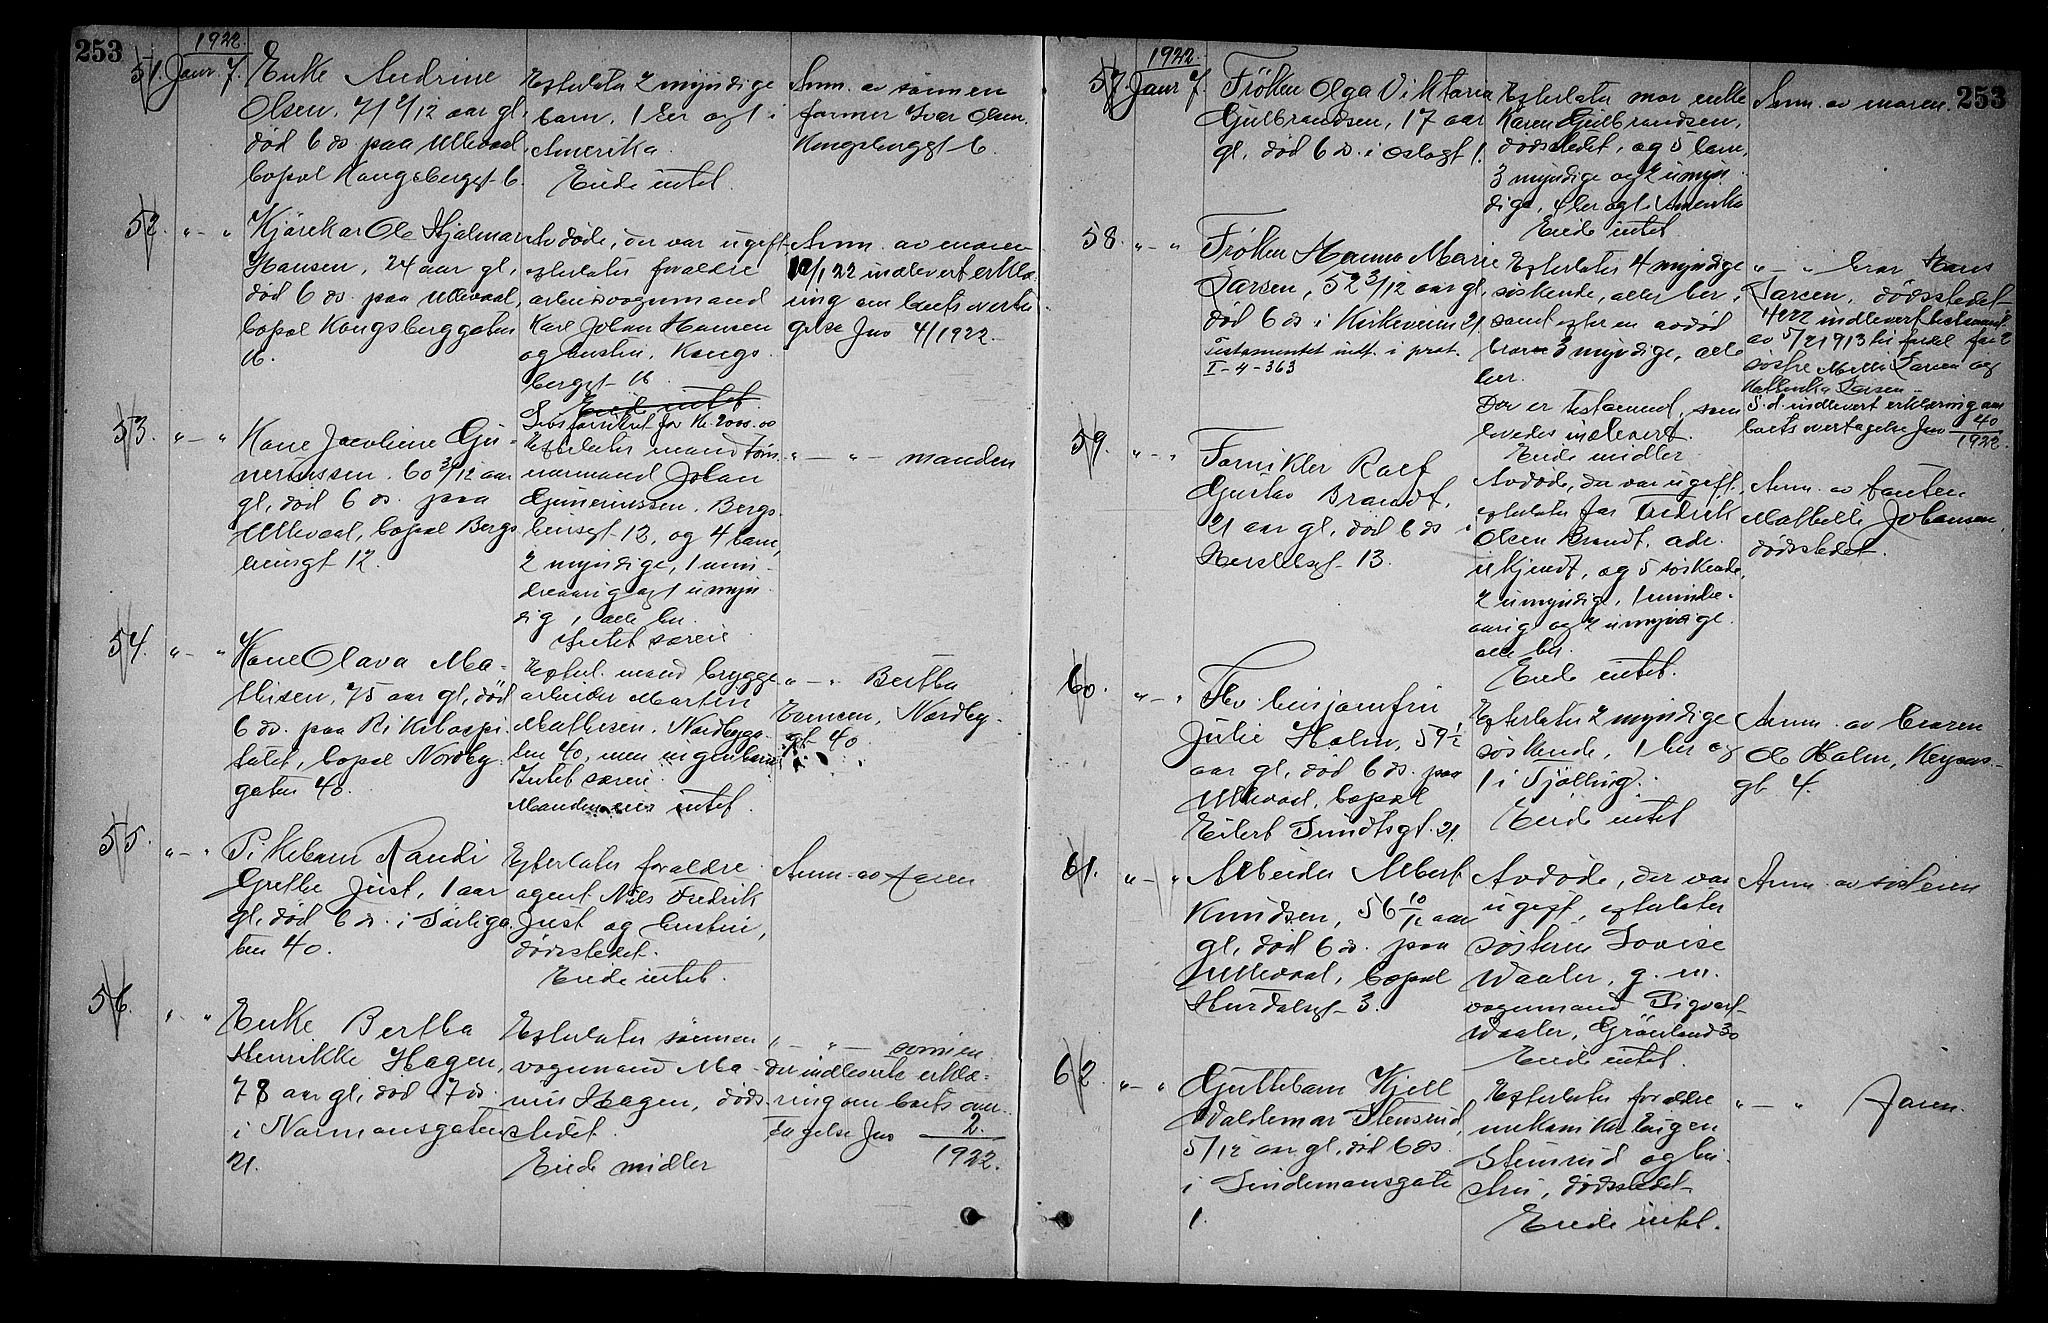 253
1922
51. Janr. 7. Enke Andrine
Olsen, 71 2/12 aar gl,
død 6 ds paa Ullevaal,
bopæl Kongsberggt 6.
Efterlater 2 myndige
barn, 1 her og 1 i
Amerika.
Eiede intet.
Anm. av sønnen
former Ivar Olsen,
Kongsberggt 6.
52. " - " Kjørekar Ole Hjalmar
Hansen, 24 aar gl,
død 6 ds. paa Ullevaal,
bopæl Kongsberggaten
16.
Avdøde, der var ugift,
efterlater forældre
arbeidsvognmand
Karl Johan Hansen
og hustru, Kongs-
berggt 16.
Eiede intet.
Livsforsikret for Kr. 2000.00
Anm. av moren
12/1 22 indlevert erklæ-
ring om boets overta-
gelse Jno 4/1922.
53. " - " Kone Jacobine Gu-
neriussen, 60 3/12 aar
gl, død 6 ds. paa
Ullevaal, bopæl Bergs-
liensgt 12.
Efterlater mand tøm-
mermand Johan
Guneriussen, Bergs-
liensgt 12, og 4 barn,
2 myndige, 1 min-
dreaarig og 1 umyn-
dig, alle her.
Intet særeie.
" - " - manden
54. " - " Kone Olava Ma-
thisen, 75 aar gl, død
6 ds. paa Rikshospi-
talet, bopæl Nordby-
gaten 40.
Efterl. mand brygge-
arbeider Martin
Mathisen, Nordbyga-
ten 40, men ingen barn.
Intet særeie.
Manden eier intet.
" - " Bertha
Nordby-
gt 40.
55. " - " Pikebarn Randi
Grethe Just, 1 aar
gl, død 6 ds. i Sorliga-
ten 40.
Efterlater forældre
agent Nils Fredrik
Just og hustru,
dødsstedet.
Eiede intet.
Anm. av faren
56. " - " Enke Bertha
Henrikke Hagen,
78 aar gl, død 7 ds.
i Normannsgaten
21.
Efterlater sønnen
vognmand Ma-
rius Hagen, døds-
stedet.
Eiede midler
" - " - sønnen
der indleverte erklæ-
ring om boets over-
tagelse Jno 2
1922.
1922.
253
57. Janr 7. Frøken Olga Viktoria
Gulbrandsen, 17 aar
gl, død 6 ds. i Oslogt 1.
Efterlater mor enke
Karen Gulbrandsen,
dødsstedet, og 5 barn,
3 myndige og 2 umyn-
dige, 4 her og 1 i Amerika
Eiede intet
Anm. av moren.
58. " - " Frøken Hanna Marie
Larsen, 52 3/12 aar gl,
død 6 ds i Kirkeveien 21
Testamentet indf. i prot.
I - 4 - 363
Efterlater 4 myndige
søskende, alle her,
samt efter en avdød
bror 3 myndige, alle
her.
Der er testament, som
lovedes indlevert.
Eiede midler
" - " bror Hans
Larsen, dødsstedet
indlevert testament
av 5/2 1913 til fordel for 2
søstre Milli Larsen og
Kathinka Larsen.
S. d. indlevert erklæring om
boets overtagelse Jno 40
1922.
59. " - " Fornikler Rolf
Gustav Brandt,
21 aar gl, død 6 ds i
Herslebsgt 13.
Avdøde, der var ugift,
efterlater far Fredrik
Olsen Brandt, adr.
ukjendt, og 5 søskende,
2 umyndige, 1 mindre-
aarig og 2 umyndige
alle her.
Eiede intet.
Anm. av tanten
Mathilde Johansen,
dødsstedet.
60. " - " Fhv husjomfru
Julie Holm, 59 1/2
aar gl, død 6 ds. paa
Ullevaal, bopæl
Eilert Sundtsgt. 21.
Efterlater 2 myndige
søskende, 1 her og
1 i Tjølling.
Eiede intet
Anm. av broren
Ole Holm, Keysers-
gt 4.
61. " - " Arbeider Albert
Knudsen, 56 10/12 aar
gl, død 6 ds. paa
Ullevaal, bopæl
Hurdalsgt 3.
Avdøde, der var
ugift, efterlater
søsteren Lovise
Waaler, g. m.
vognmand Sigvart
Waaler, Grønland 30
Eiede intet.
Anm. av søsteren
62. " - " Guttebarn Kjell
Valdemar Stensrud,
5/12 aar gl, død 6 ds.
i Lindemansgate
1.
Efterlater forældre
mekaniker Birger
Stensrud og hu-
stru, dødsstedet
Eiede intet.
" - " faren.